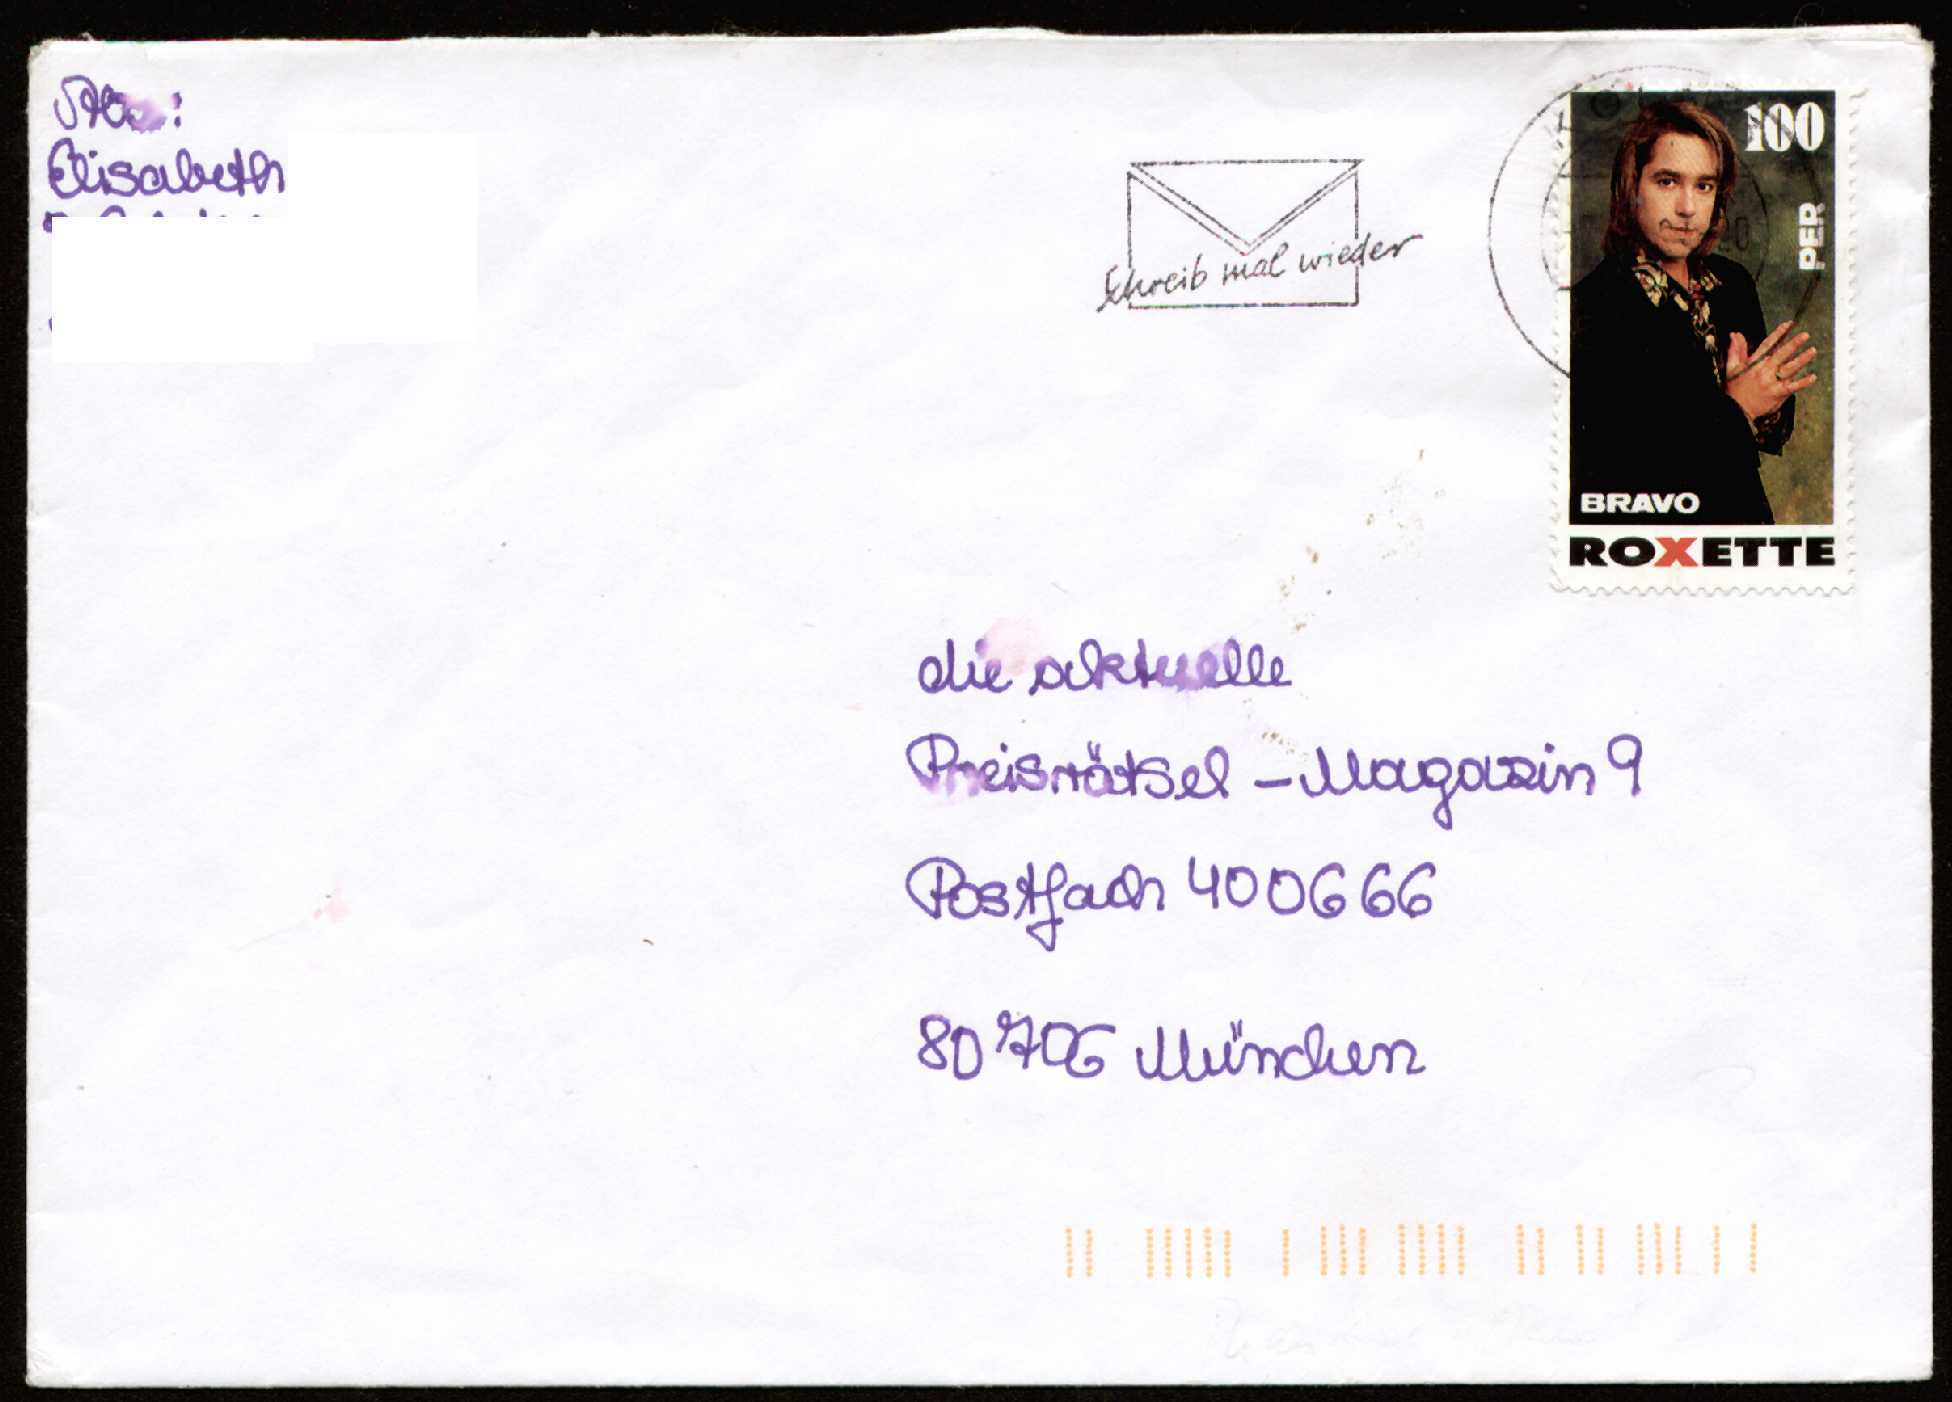 Abs.:
Elisabeth
Schreib mal wieder
100
PER
BRAVO
ROXETTE
die aktuelle
Preisrätsel - Magazin 9
Postfach 400666
80706 München